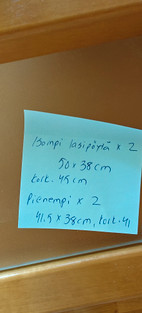 Isompi lasipöytä x 2
50 x 38 cm
kork. 45 cm
Pienempi x 2
41.5 x 38 cm, kork. 41